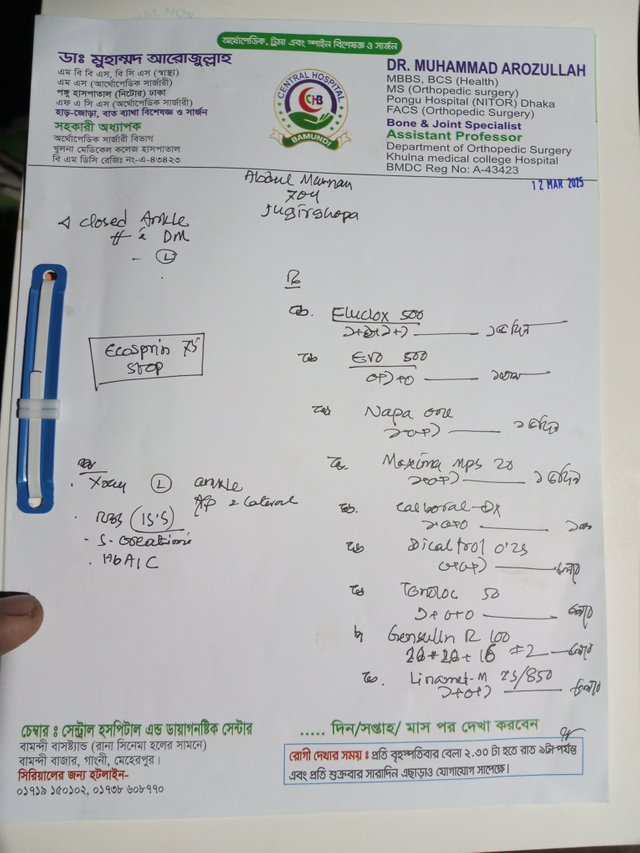 অর্থোপেডিক, ট্রমা এবং স্পাইন বিশেষজ্ঞ ও সার্জন
ডাঃ মুহাম্মদ আরোজুল্লাহ
এম বি বি এস, বি সি এস (স্বাস্থ্য)
এম এস (অর্থোপেডিক সার্জারী)
পঙ্গু হাসপাতাল (নিটোর) ঢাকা
এফ এ সি এস (অর্থোপেডিক সার্জারী)
হাড়-জোড়া, বাত ব্যাথা বিশেষজ্ঞ ও সার্জন
সহকারী অধ্যাপক
অর্থোপেডিক সার্জারী বিভাগ
খুলনা মেডিকেল কলেজ হাসপাতাল
বি এম ডিসি রেজিঃ নং-এ-৪৩৪২৩
CENTRAL HOSPITAL
CHB
BAMUNDI
DR. MUHAMMAD AROZULLAH
MBBS, BCS (Health)
MS (Orthopedic surgery)
Pongu Hospital (NITOR) Dhaka
FACS (Orthopedic surgery)
Bone & Joint Specialist
Assistant Professor
Department of Orthopedic Surgery
Khulna medical college Hospital
BMDC Reg No: A-43423
12 MAR 2025
Abdul Mannan
70y
closed Ankle
# c DM
- (L)
Ecosprin 75
STOP
X-ray (L) ankle
AP & Lateral
RBS (15.5)
- S. Creatinine
. HbA1C
Rx
Fluclox 500
১+১+১+১ ১৫ দিন
Evo 500
০+১+০
Napa one
১+০+১
Maxima MPS 20
১+০+১
Calboral-DX
১+০+০
Dicaltrol 0.25
০+০+১ চলবে
Tenoloc 50
১+০+০ চলবে
Gensulin R 100
16 #2 চলবে
Linamet-M 2.5/850
১+০+১ চলবে
চেম্বার : সেন্ট্রাল হসপিটাল এন্ড ডায়াগনষ্টিক সেন্টার
বামন্দী বাসষ্ট্যান্ড (রানা সিনেমা হলের সামনে)
বামন্দী বাজার, গাংনী, মেহেরপুর।
সিরিয়ালের জন্য হটলাইন-
০১৭১৯ ১৫০১০২, ০১৭৩৮ ৬০৮৭৭০
..... দিন/সপ্তাহ/ মাস পর দেখা করবেন
রোগী দেখার সময় : প্রতি বৃহস্পতিবার বেলা ২.৩০ টা হতে রাত ৯টা পর্যন্ত
এবং প্রতি শুক্রবার সারাদিন এছাড়াও যোগাযোগ সাপেক্ষে।